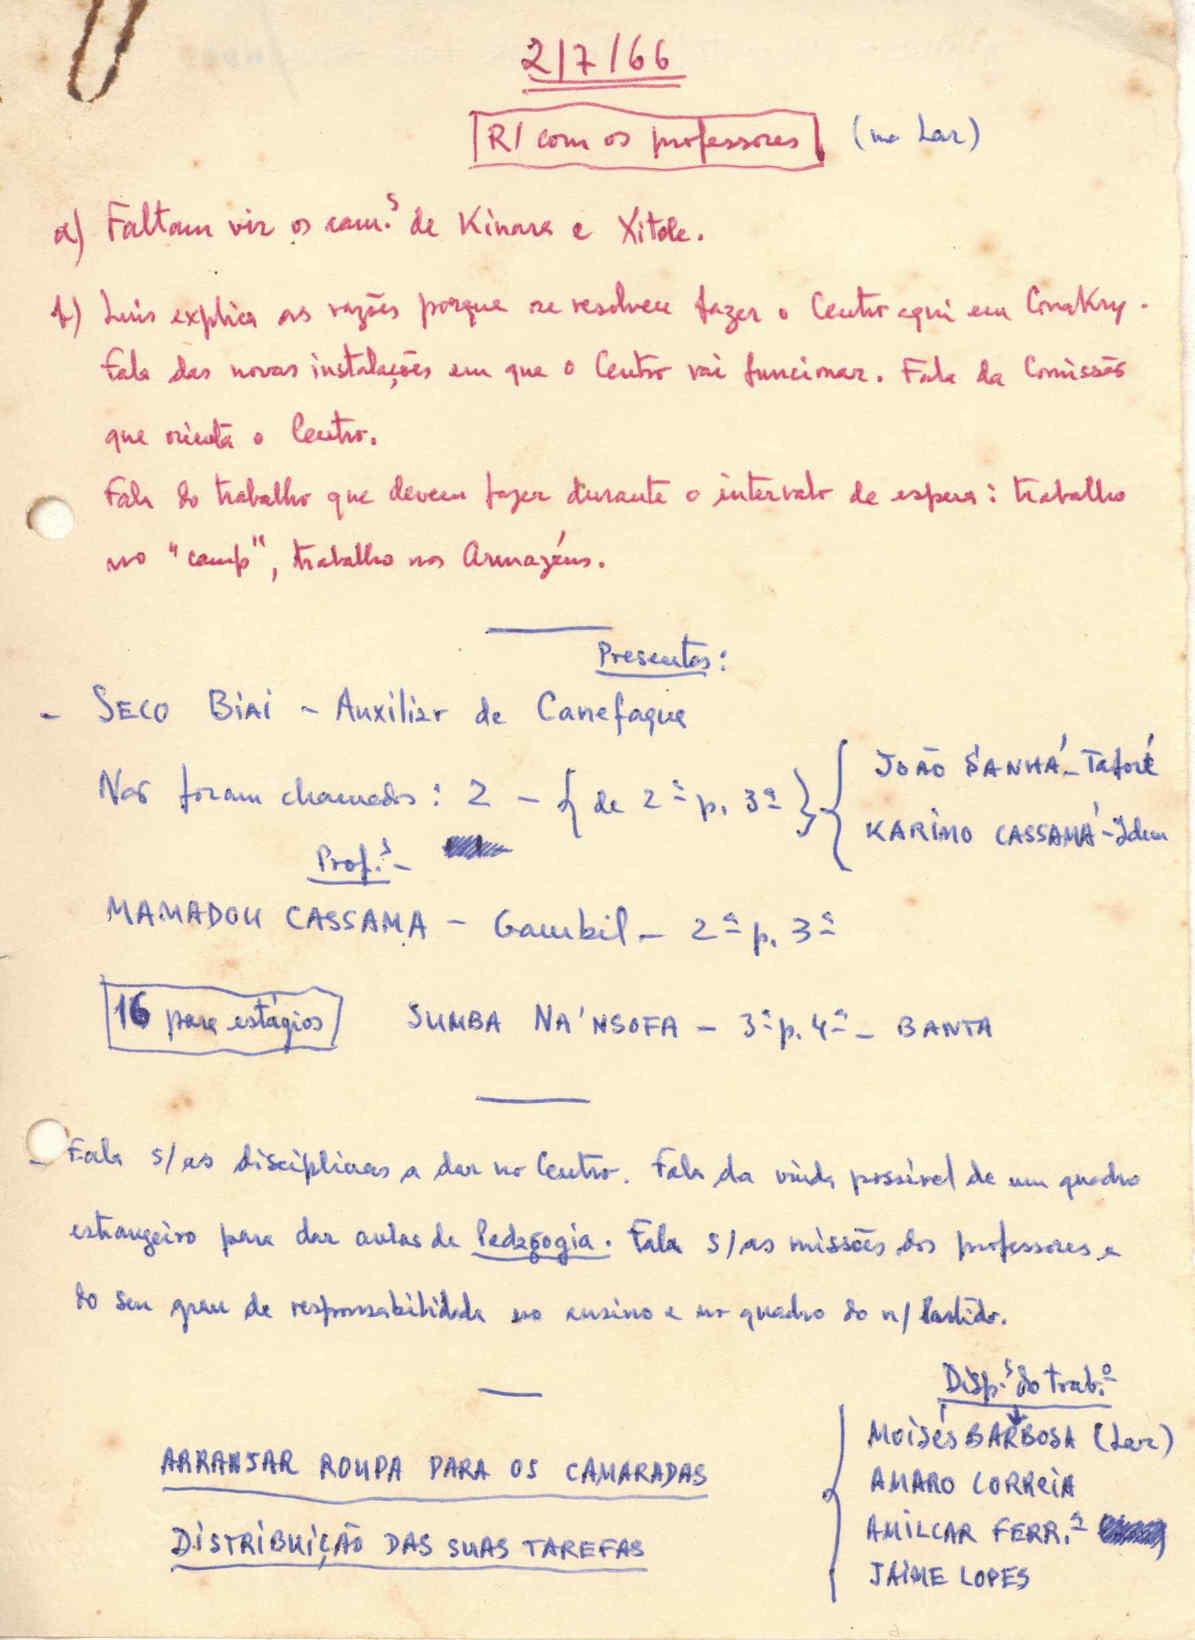 2/7/66
R/ com os professores (no Lar)
a) Faltam vir os cam.s de Kinara e Xitole.
b) Luís explica as razões porque se resolveu fazer o Centro aqui em Conakry.
Fala das novas instalações em que o Centro vai funcionar. Fala da Comissão
que orienta o Centro.
Fala do trabalho que devem fazer durante o intervalo de espera: trabalho
no "camp", trabalho nos Armazéns.
Presentes:
- SECO BIAI - Auxiliar de Canefaque
Não foram chamados: 2 - { de 2ª p. 3ª } { JOÃO SANHÁ - Taforé
KARIMO CASSAMÁ - Idem
Prof.s -
MAMADOU CASSAMA - Gambil - 2ª p. 3ª
16 para estágios SUMBA NA'NSOFA - 3ª p. 4ª - BANTA
- Fala s/ as disciplinas a dar no Centro. Fala da vinda possível de um quadro
estrangeiro para dar aulas de Pedagogia. Fala s/ as missões dos professores e
do seu grau de responsabilidade no ensino e no quadro do n/ Partido.
Disp.s do trab.o
MOISÉS BARBOSA (Lar)
AMARO CORREIA
AMILCAR FERR.ª
JAIME LOPES
ARRANJAR ROUPA PARA OS CAMARADAS
DISTRIBUIÇÃO DAS SUAS TAREFAS